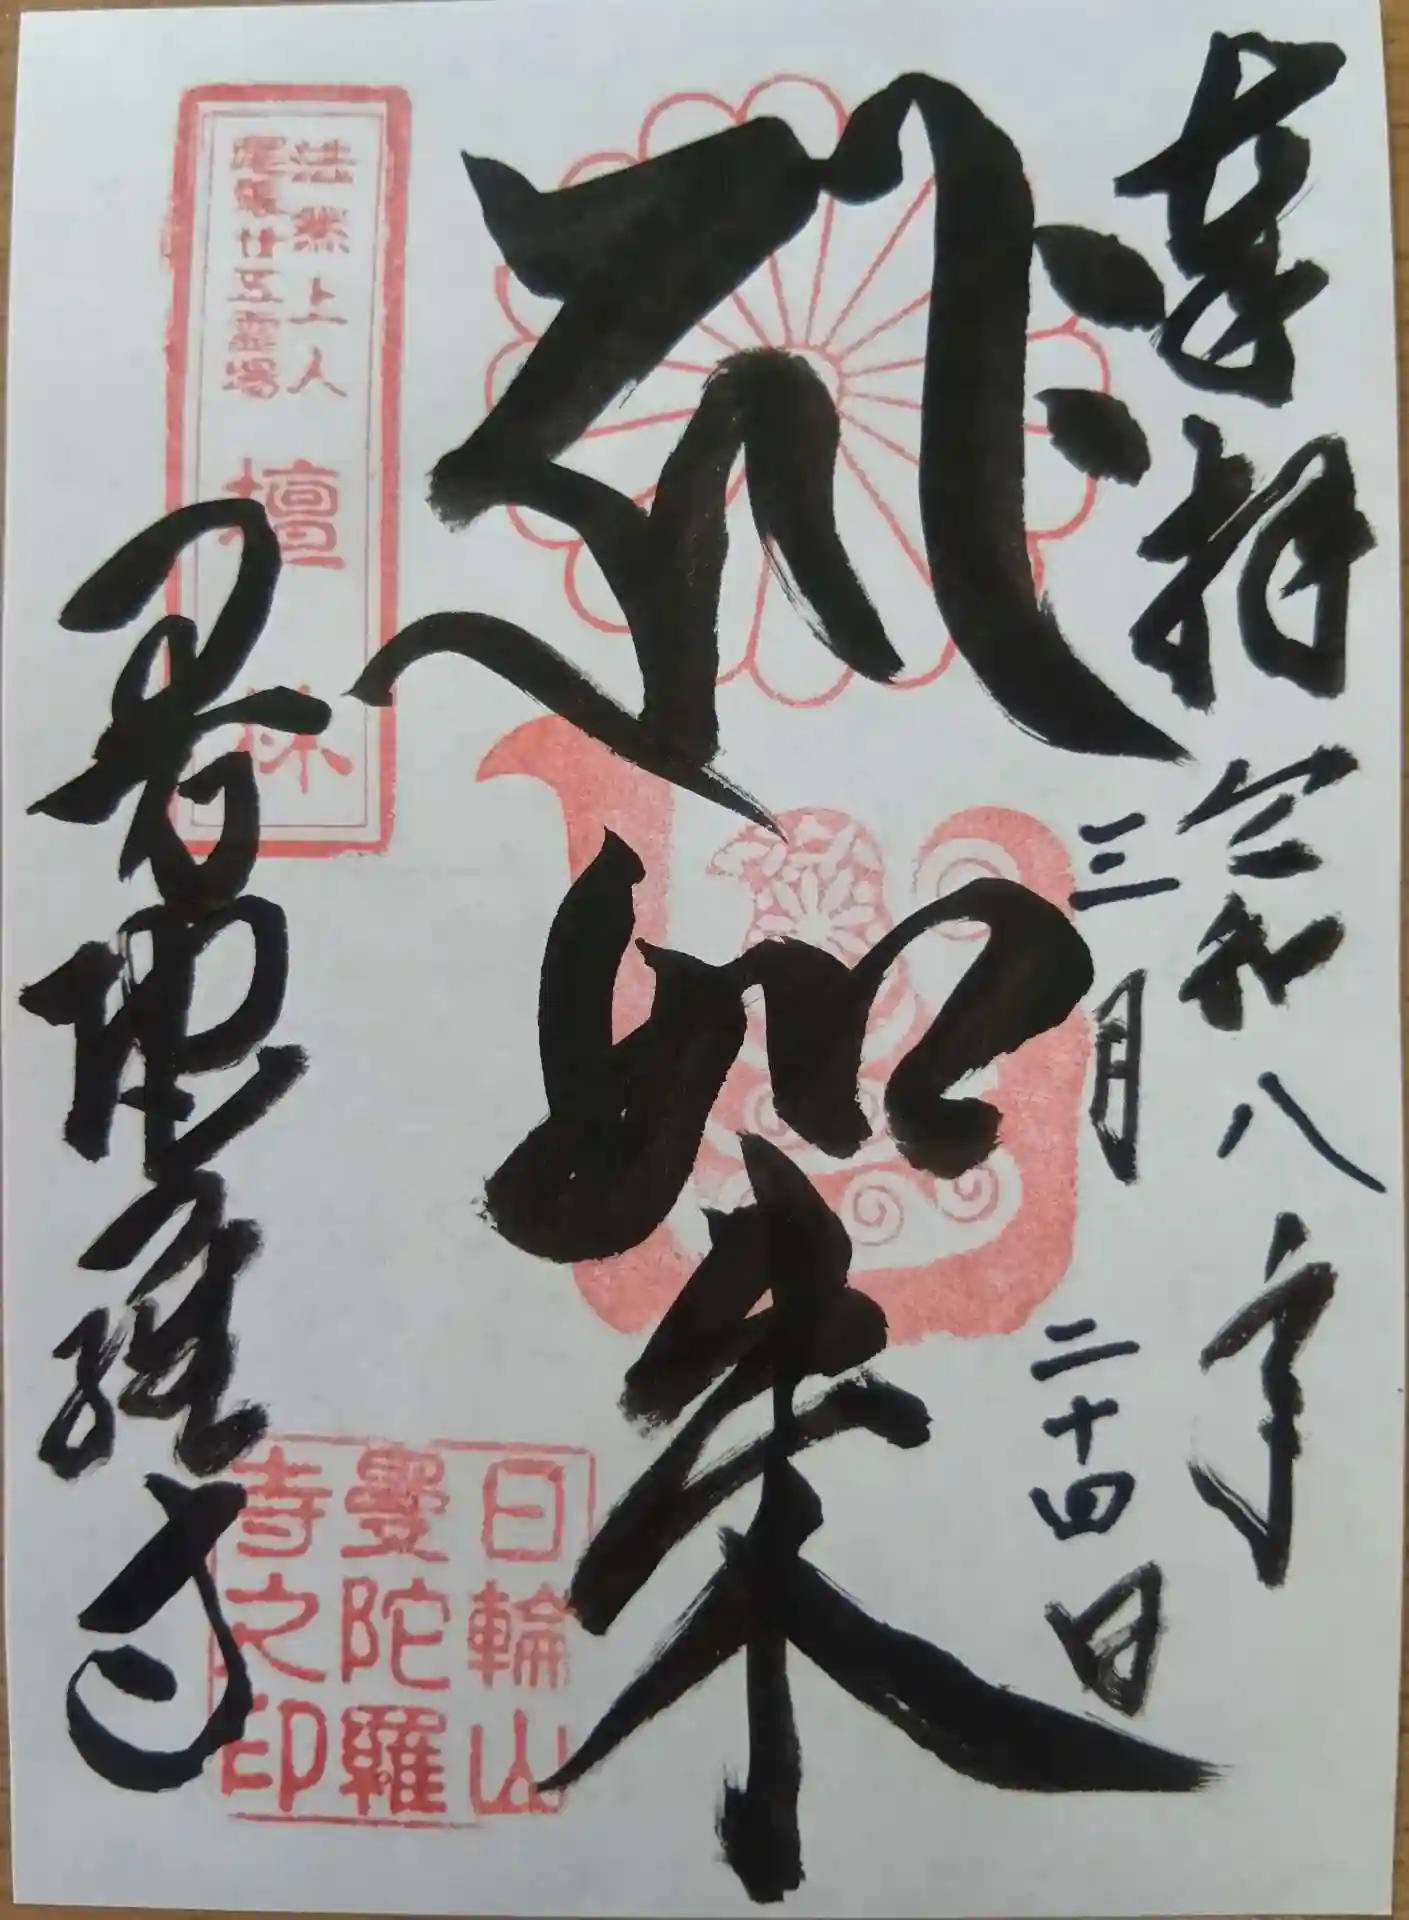 奉拝 令和八年
三月二十四日
如来
曼陀羅寺
法然上人
尾張廿五霊場
檀林
日輪山
曼陀羅
寺之印